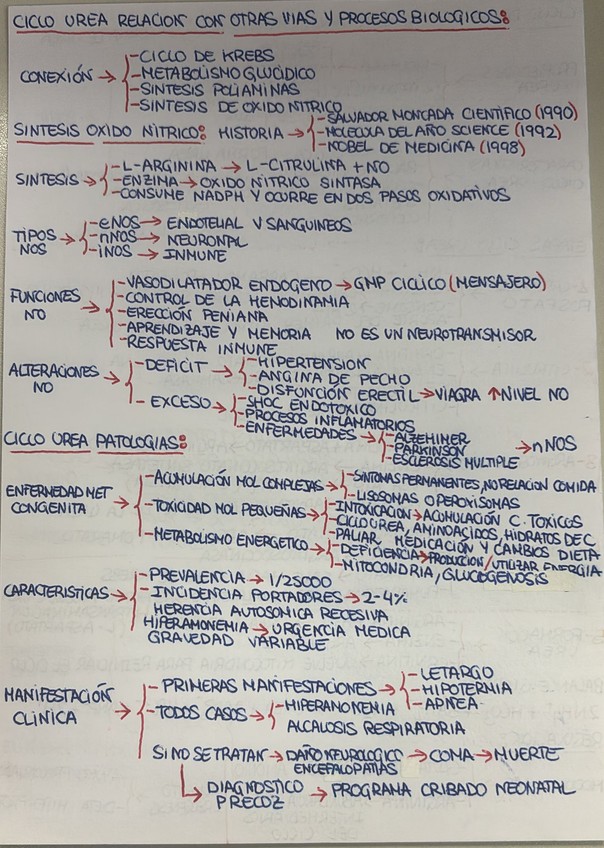 CICLO UREA RELACION CON OTRAS VIAS Y PROCESOS BIOLOGICOS:
CONEXIÓN → -CICLO DE KREBS
-METABOLISMO GLUCÍDICO
-SINTESIS POLIAMINAS
-SINTESIS DE OXIDO NITRICO
SINTESIS OXIDO NÍTRICO: HISTORIA → -SALVADOR MONCADA CIENTÍFICO (1990)
-MOLECULA DEL AÑO SCIENCE (1992)
-NOBEL DE MEDICINA (1998)
SINTESIS → -L-ARGININA → L-CITRULINA + NO
-ENZIMA → OXIDO NITRICO SINTASA
-CONSUME NADPH Y OCURRE EN DOS PASOS OXIDATIVOS
TIPOS NOS → -eNOS → ENDOTELIAL V SANGUINEOS
-nNOS → NEURONAL
-iNOS → INMUNE
FUNCIONES NO → -VASODILATADOR ENDOGENO → GMP CICLICO (MENSAJERO)
-CONTROL DE LA HEMODINAMIA
-ERECCIÓN PENIANA
-APRENDIZAJE Y MEMORIA NO ES UN NEUROTRANSMISOR
-RESPUESTA INMUNE
ALTERACIONES NO → -DEFICIT → -HIPERTENSION
-ANGINA DE PECHO
-DISFUNCIÓN ERECTIL → VIAGRA ↑ NIVEL NO
- EXCESO → -SHOC ENDOTOXICO
-PROCESOS INFLAMATORIOS
-ENFERMEDADES → -ALZEHIMER
-PARKINSON → nNOS
-ESCLEROSIS MULTIPLE
CICLO UREA PATOLOGIAS:
ENFERMEDAD MET CONGENITA → -ACUMULACIÓN MOL COMPLETAS → -SINTOMAS PERMANENTES, NO RELACION COMIDA
-LISOSOMAS O PEROXISOMAS
-TOXICIDAD MOL PEQUEÑAS → -INTOXICACION → ACUMULACIÓN C. TOXICOS
-CICLO UREA, AMINOACIDOS, HIDRATOS DE C
-PALIAR, MEDICACIÓN Y CAMBIOS DIETA
-METABOLISMO ENERGETICO → -DEFICIENCIA → PRODUCION / UTILIZAR ENERGIA
-MITOCONDRIA, GLUCOGENOSIS
CARACTERISTICAS → -PREVALENCIA → 1/25000
-INCIDENCIA PORTADORES → 2-4%
HERENCIA AUTOSOMICA RECESIVA
HIPERAMONEMIA → URGENCIA MEDICA
GRAVEDAD VARIABLE
MANIFESTACIÓN CLINICA → -PRIMERAS MANIFESTACIONES → -LETARGO
-HIPOTERNIA
-APNEA
-TODOS CASOS → -HIPERANONEMIA
ALCALOSIS RESPIRATORIA
SI NO SE TRATAN → DAÑO NEUROLOGICO → COMA → MUERTE
ENCEFALOPATIAS
DIAGNOSTICO PRECOZ → PROGRAMA CRIBADO NEONATAL